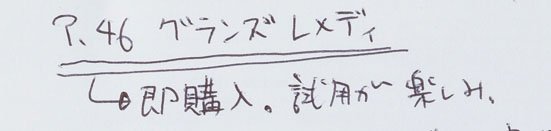 P.46 グランズレメディ
即購入。試用が楽しみ。